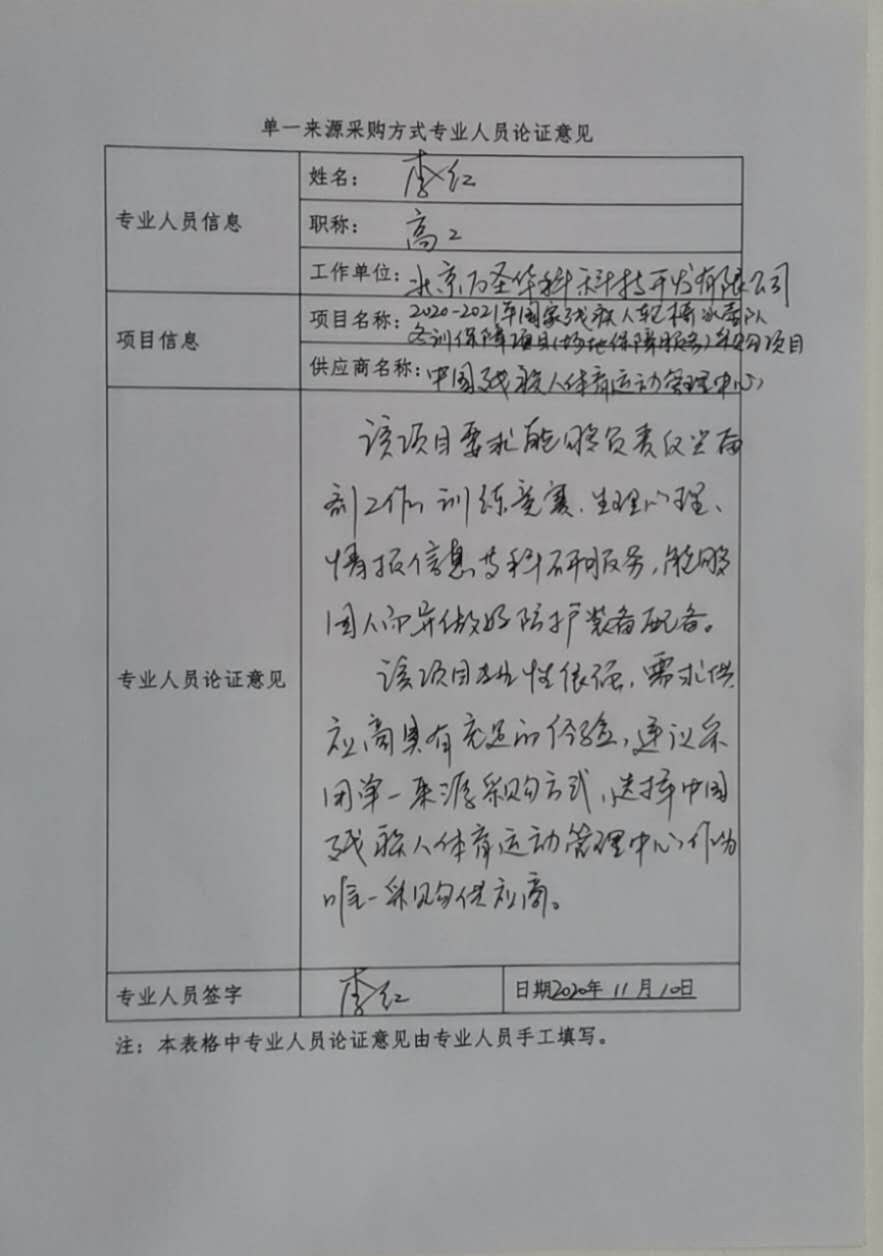 单一来源采购方式专业人员论证意见
专业人员信息
姓名: 李红
职称: 高工
工作单位: 北京万圣华科科技开发有限公司
项目信息
项目名称: 2020-2021年国家残疾人轮椅冰壶队
冬训保障项目(场地保障服务)采购项目
供应商名称: 中国残疾人体育运动管理中心
专业人员论证意见
该项目要求能够负责仅
剂工作、训练竞赛、生理心理、
情报信息与科研服务,能够
因人而异做好防护装备配备。
该项目 性很强,需求供
应商具有充足的经验,建议采
用单一来源采购方式,选择中国
残疾人体育运动管理中心作为
唯一采购供应商。
专业人员签字
李红
日期2020年11月10日
注: 本表格中专业人员论证意见由专业人员手工填写。